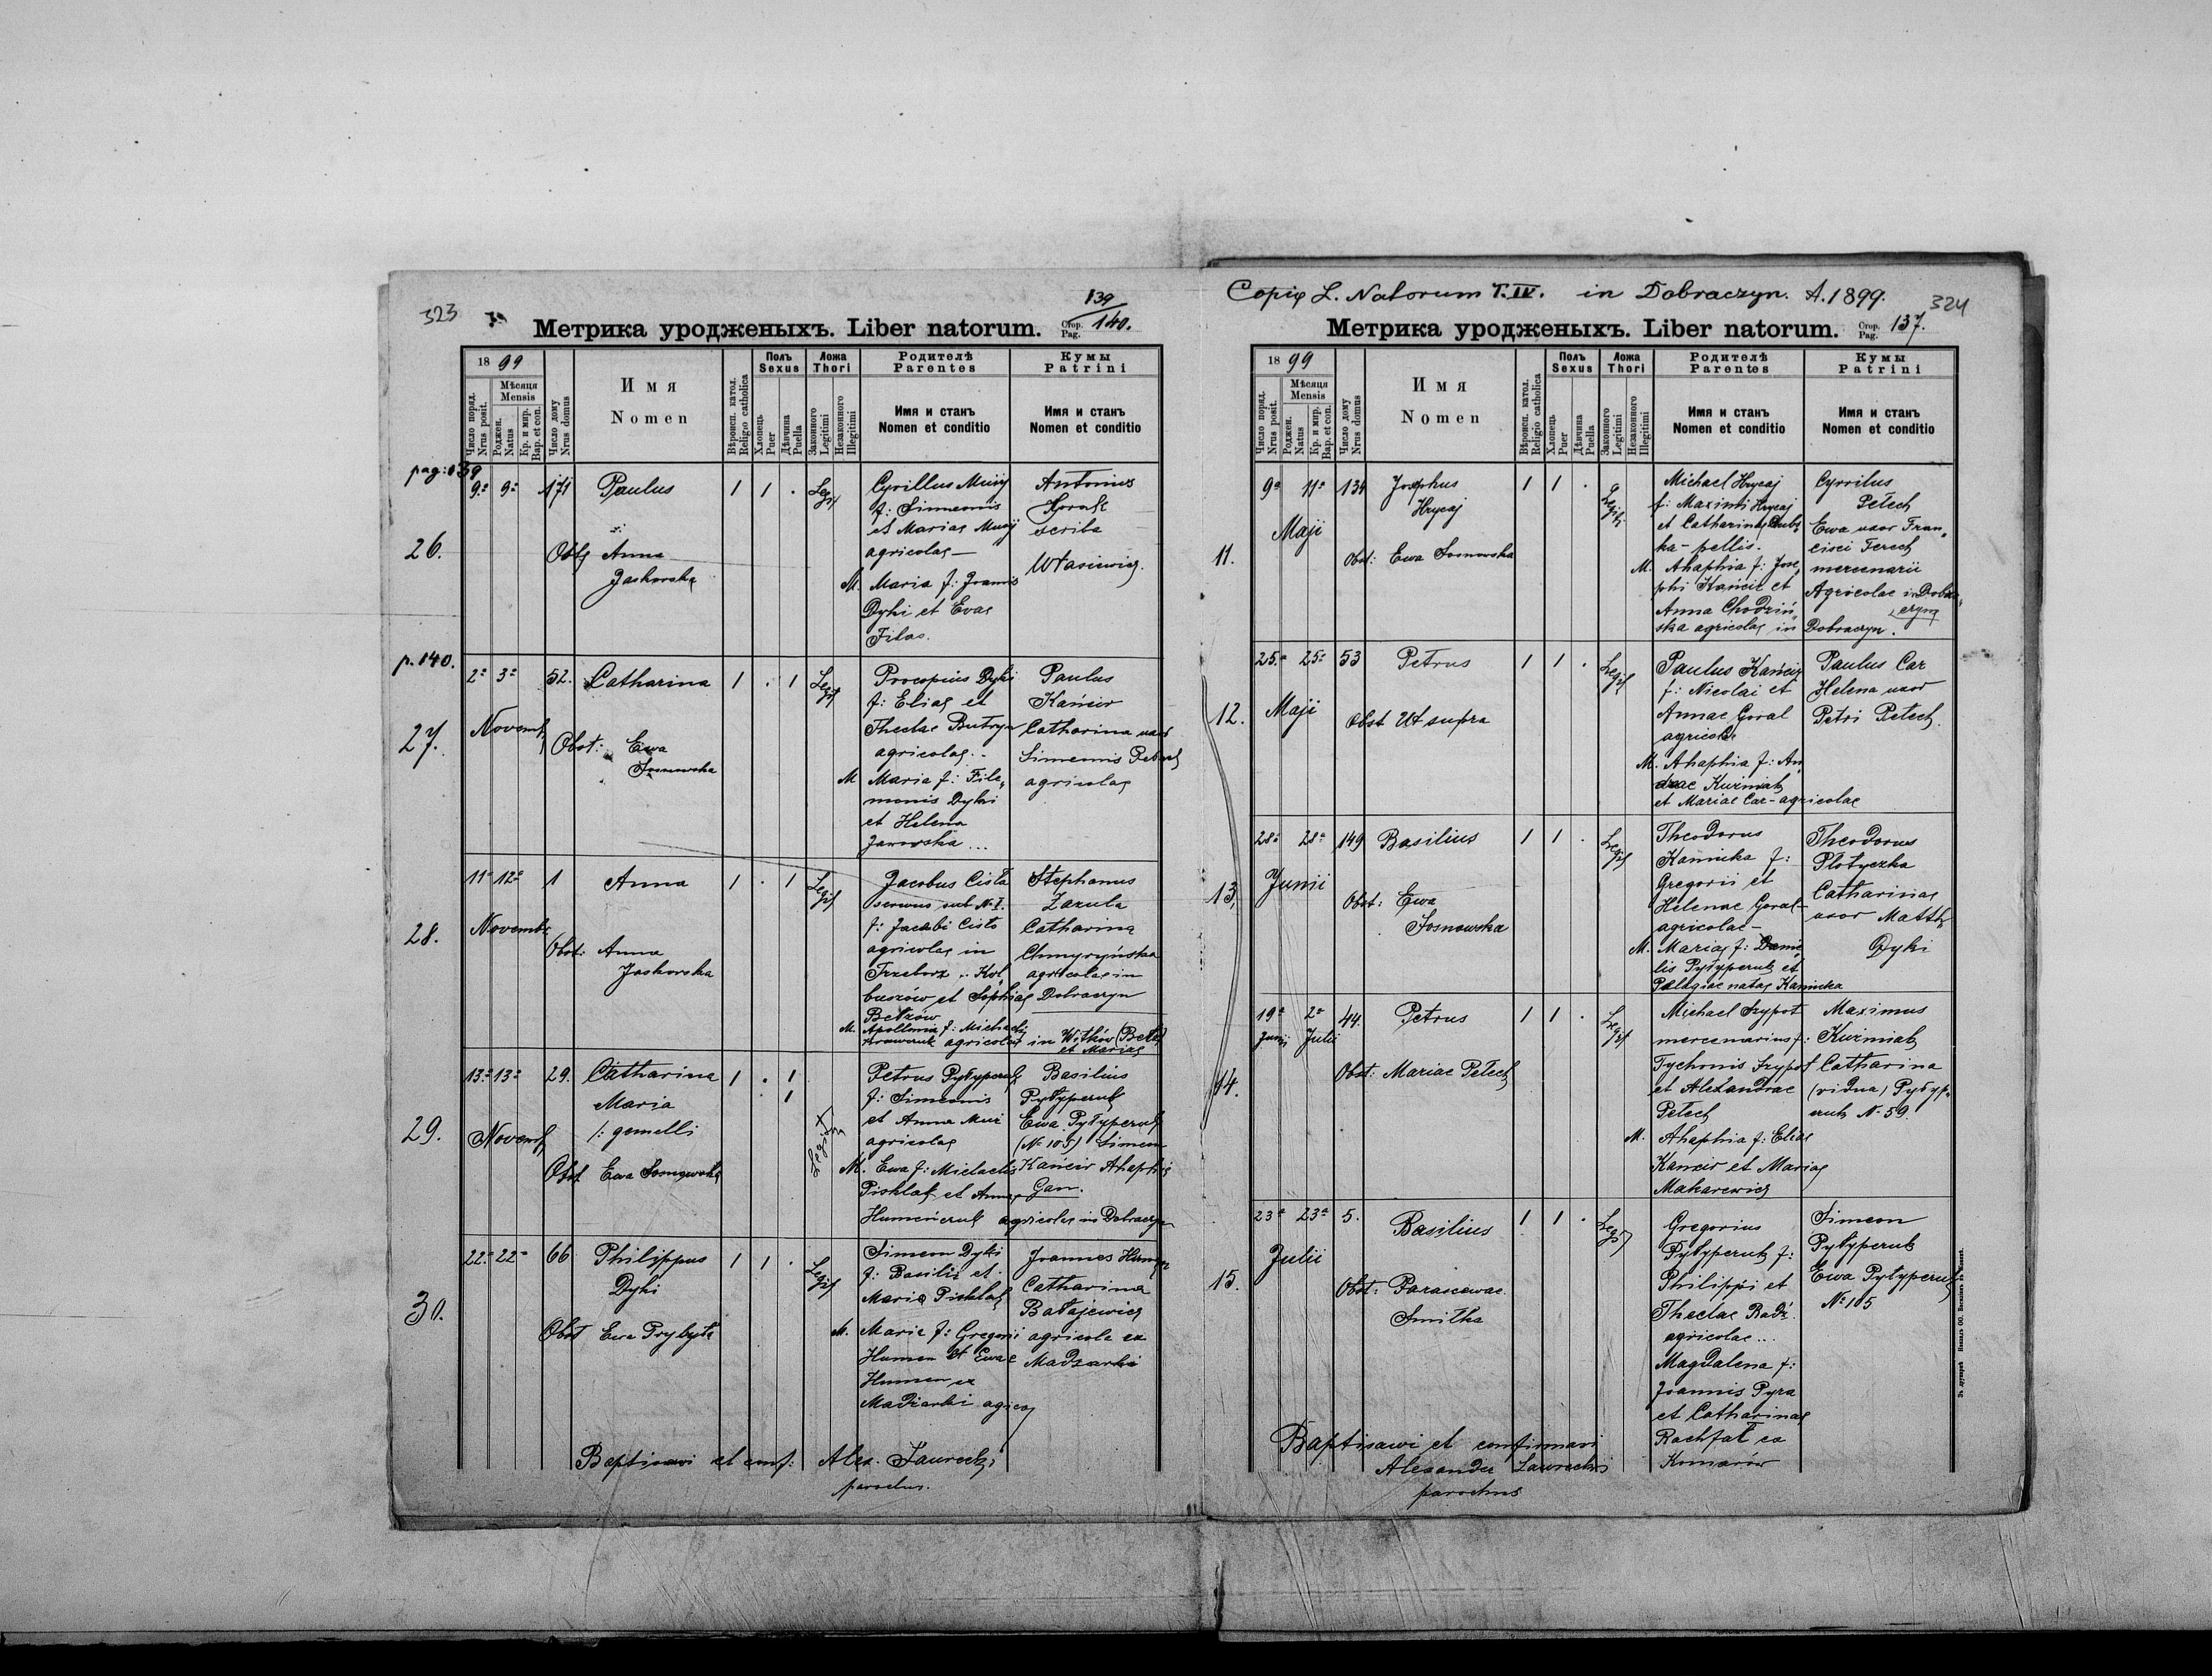 323
139
140.
Метрика уродженыхъ. Liber natorum. Стор. Pag.
18 99
Число поряд. Nrus posit.
Мѣсяця Mensis
Роджен. Natus
Кр. и мир. Bap. et con.
Число дому Nrus domus
Имя
Nomen
Вѣроисп. катол. Religio catholica
Полъ Sexus
Хлопець Puer
Дѣвчина Puella
Ложа Thori
Законного Legitimi
Незаконного Illegitimi
Родителѣ
Parentes
Имя и станъ
Nomen et conditio
Кумы
Patrini
Имя и станъ
Nomen et conditio
pag: 139
26.
9. 9. 171 Paulus 1 1 . Legit
Anna
Jaskowska
Cyrillus
f: Simeonis
et Mariae
agricolae —
M. Maria f: Joannis
Dyki et Evae
Filas.
Antonius
scriba
p. 140.
27.
2 3 52. Catharina 1 . 1 Legit
Novemb
Obst: Ewa
Sosnowska
Procopius Dyki
f: Eliae et
Theclae Butryn
agricolae.
M Maria f: File,,
monis Dyki
et Helena
Jaworska ...
Paulus
Kańcir
Catharina uxor
Simeonis
agricolae
28.
11 12 1 Anna 1 . 1 Legit
Novemb
Obst: Anna
Jaskowska
Jacobus Cisło
servus sub N. I.
f: Jacobi Cisło
agricolae in
buszów et Sophiae
M. Apollonia f: Michaelis
agricolae in Witków
et Mariae
Stephanus
Zazula
Catharina
agricolae in
Dobraczyn
29.
13 13 29. Catharina 1 . 1
Maria . 1
/: gemelli
Novemb
Obst Ewa Sosnowska
Legit
Petrus Pyłypczuk
f: Simeonis
et Anna
agricolae
M. Ewa f: Michaelis
et Annae
agricolae in Dobraczyn
Basilius
Pyłypczuk
Ewa Pyłypczuk
(No 105) Simeon
Kańcir Ahaphia
Gan.
30.
22. 22 66 Philippus 1 1 . Legit
Dyki
Obst Ewa Prybyła
Simeon Dyki
f: Basilii et
Maria
M. Maria f: Gregorii
Humen et Ewae
Humen ex
Madziarki agricolae
Joannes
Catharina
Batajewicz
agricola ex
Madziarki
Baptisavi et conf: Alex. Ławrecki
parochus.
Copia L. Natorum T. IV. in Dobraczyn. A. 1899.
324
Метрика уродженыхъ. Liber natorum. Стор. Pag. 137.
18 99
Число поряд. Nrus posit.
Мѣсяця Mensis
Роджен. Natus
Кр. и мир. Bap. et con.
Число дому Nrus domus
Имя
Nomen
Вѣроисп. катол. Religio catholica
Полъ Sexus
Хлопець Puer
Дѣвчина Puella
Ложа Thori
Законного Legitimi
Незаконного Illegitimi
Родителѣ
Parentes
Имя и станъ
Nomen et conditio
Кумы
Patrini
Имя и станъ
Nomen et conditio
11.
9 11 134 Josephus 1 1 . Legit.
Hrycaj
Maji
Obst: Ewa Sosnowska
Michael Hrycaj
f: Maximi Hrycaj
et Catharinae
M. Ahaphia f: Jose,,
phi Kańcir et
Anna Chodziń,,
ska agricolae in Dobraczyn.
Cyrrilus
Petech
Ewa uxor Fran,,
cisci Terech
mercenarii
Agricolae in Dobra,,
czyn
12.
25. 25 53 Petrus 1 1 . Legit
Maji
Obst Ut supra
Paulus Kańcir
f: Nicolai et
Annae Goral
agricolae
M. Ahaphia f: An
dreae Kuźniak
et Mariae Car - agricolae
Paulus Car
Helena uxor
Petri Petech.
13.
28 28 149 Basilius 1 1 . Legit
Junii
Obst: Ewa
Sosnowska
Theodorus
Kaminka f:
Gregorii et
Helenae Goral -
agricolae -
M. Mariae f: Danie
lis Pyłypczuk et
Pelagiae natae Kaminka
Theodorus
Płotyczka
Catharinae
uxor Matth
Dyki
14.
19 2 44. Petrus 1 1 . Legit
Junii Julii
Obst: Mariae Petech
Michael Szypot
mercenarius f:
Tychonis Szypot
et Alexandrae
Petech
M. Ahaphia f: Eliae
Kańcir et Mariae
Makarewicz
Maximus
Kuźniak
Catharina
(vidua) Pyłyp,,
czuk No 59.
15.
23 23 5. Basilius 1 1 . Legit
Julii
Obst: Parascewae
Smitka
Gregorius
Pyłypczuk f:
Philippi et
Theclae
agricolae ...
Magdalena f:
Joannis Pyra
et Catharinae
Rachfał ex
Komarów
Simeon
Pyłypczuk
Ewa Pyłypczuk
No 105
Baptisavi et confirmavi
Alexander Ławrecki
parochus